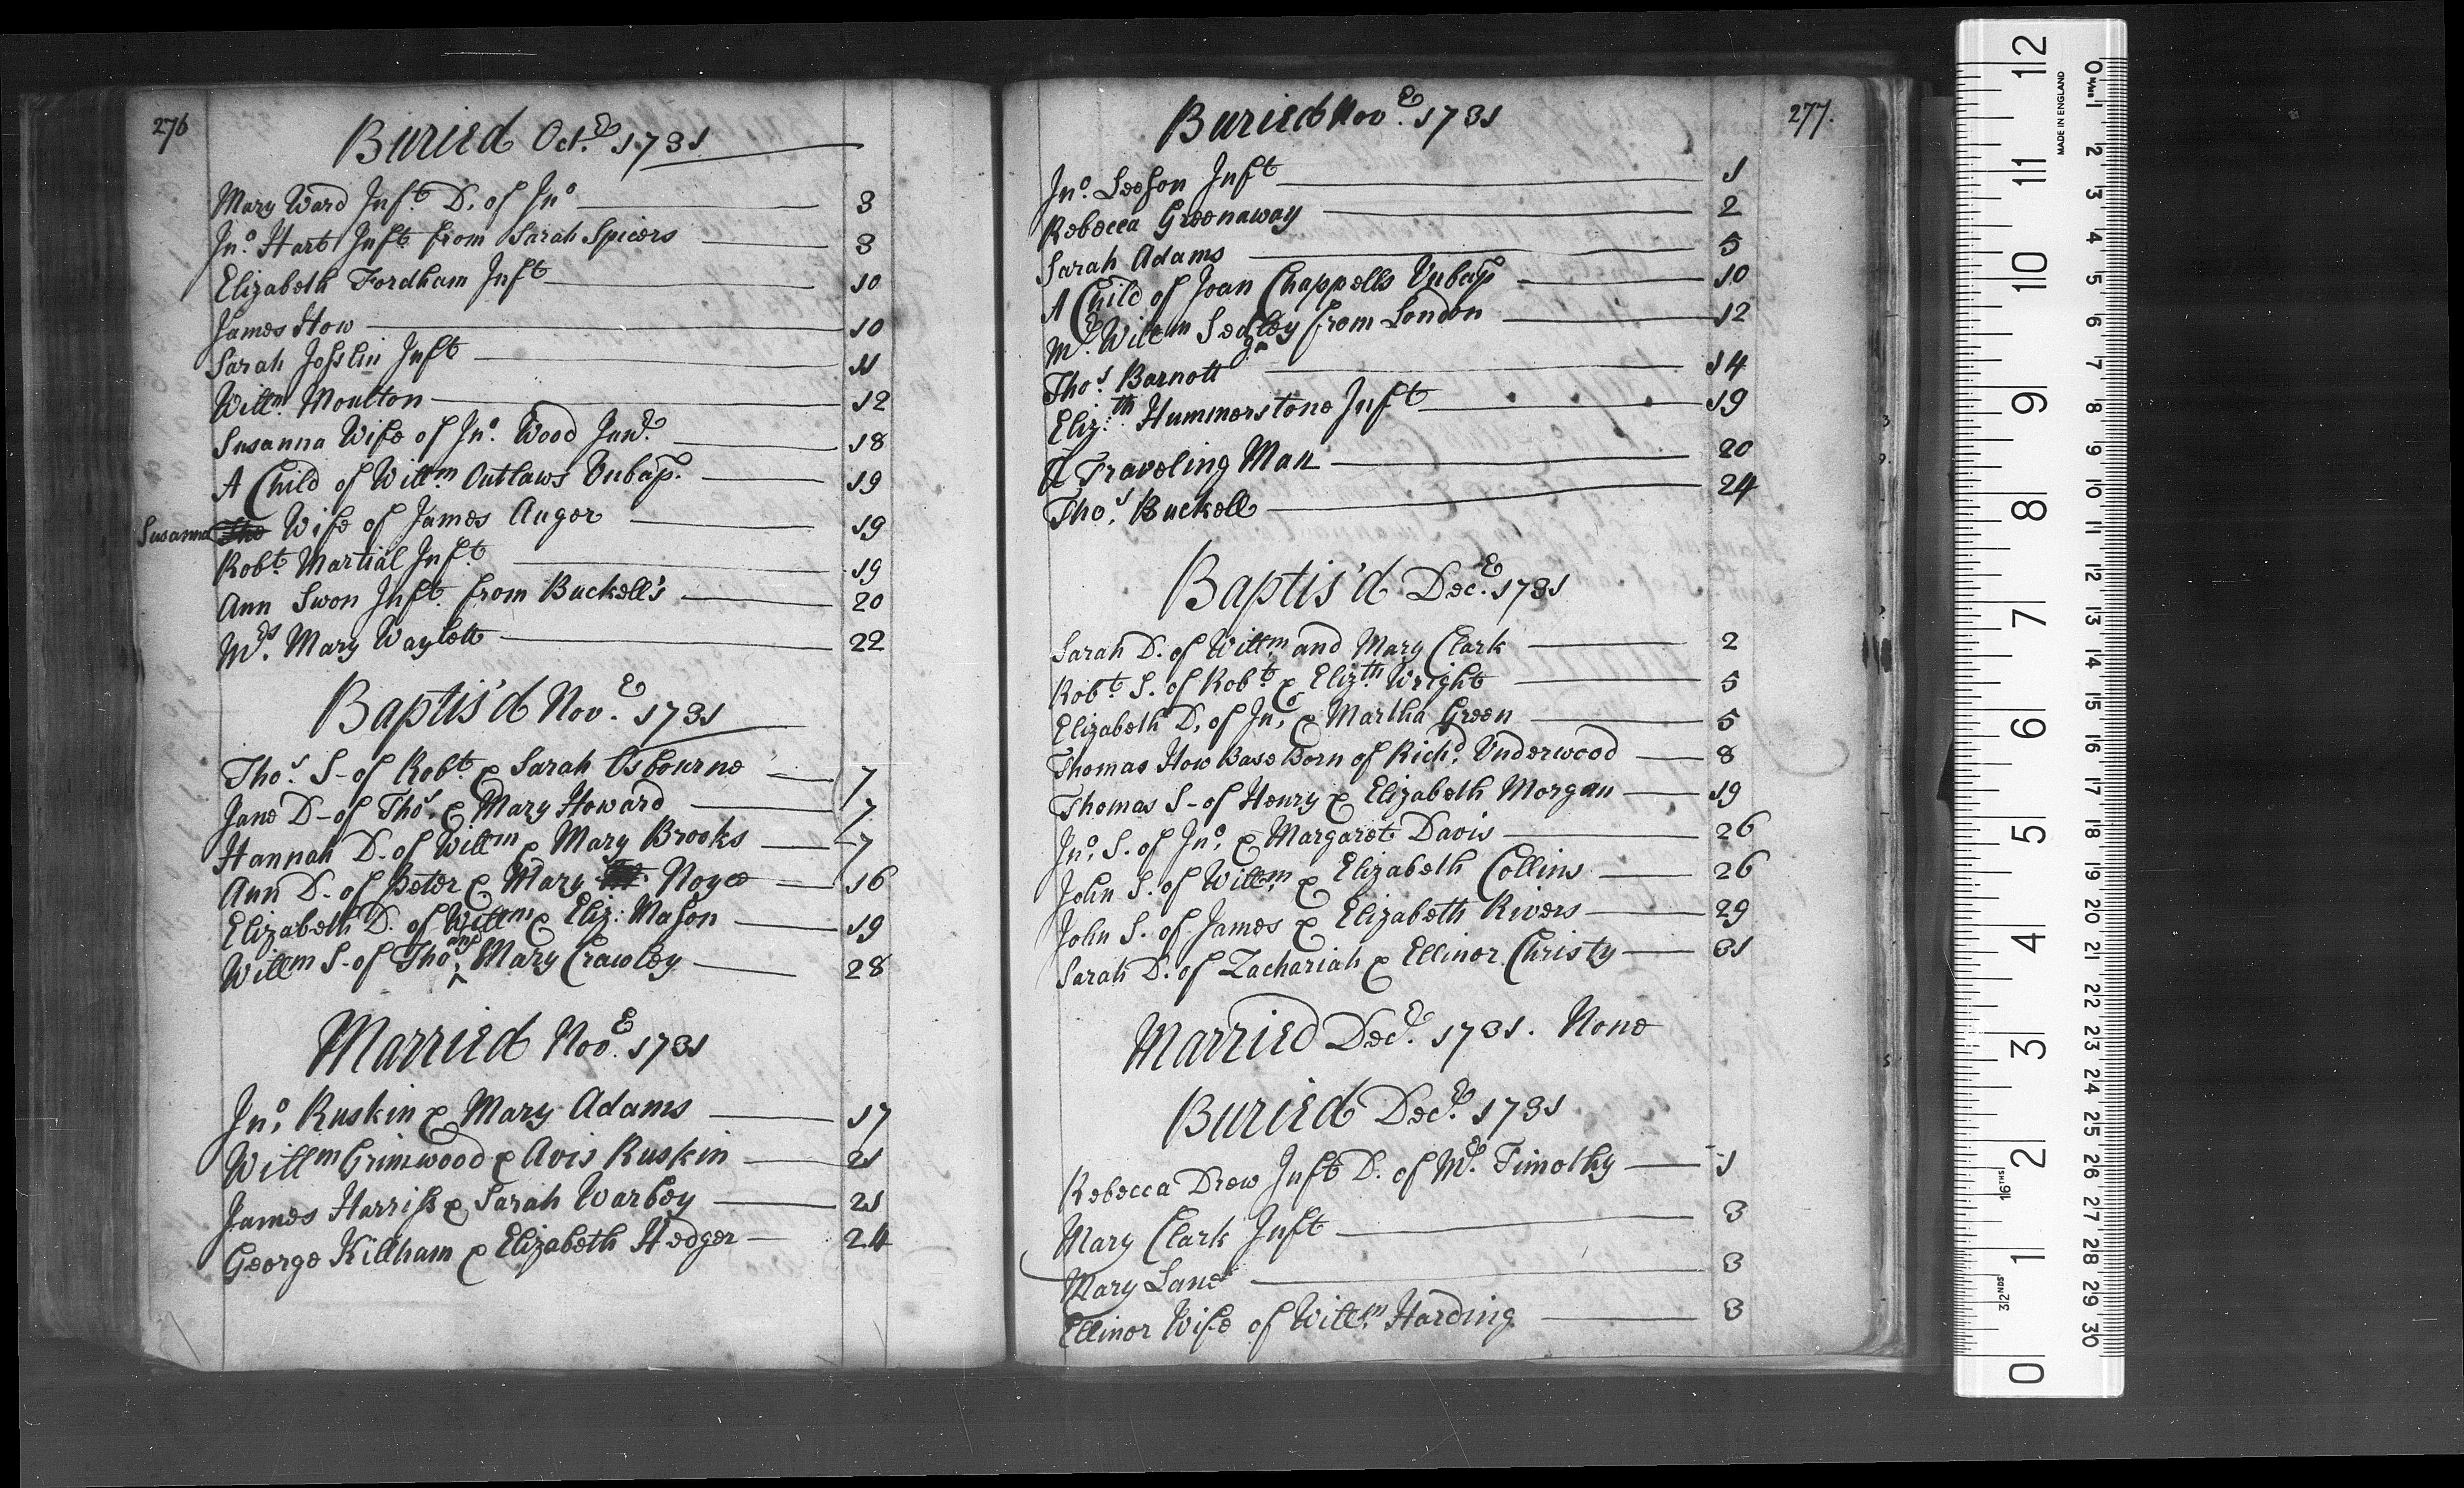 276
Buried Octr. 1731
Mary Ward Inft. D. of Jno 3
Jno. Hart Inft from Sarah Spicers 3
Elizabeth Fordham Inft 10
James How 10
Sarah Josslin Inft 11
Willm. Moulton 12
Susanna Wife of Jno. Wood Junr. 18
A Child of Willm. Outlaws Unbap. 19
Susanna The Wife of James Auger 19
Robt. Martial Inft. 19
Ann Swon Inft. from Buckell's 20
Mrs. Mary Waylett 22
Baptis'd Novr. 1731
Thos. S- of Robt. & Sarah Osbourne 7
Jane D- of Thos. & Mary Howard 7
Hannah D. of Willm & Mary Brooks 7
Ann D. of Peter & Mary Noyce 16
Elizabeth D. of Willm & Eliz: Mason 19
Willm S- of Thos. and Mary Crawley 28
Married Novr. 1731
Jno. Ruskin & Mary Adams 17
Willm Grimwood & Avis Ruskin 21
James Harriss & Sarah Warbey 21
George Killham & Elizabeth Hedger 24
277.
Buried Novr. 1731
Jno. Leeson Inft 1
Rebecca Greenaway 2
Sarah Adams 5
A Child of Joan Chappells Unbap 10
Mr. Willm Sedgley from London 12
Thos. Barnott 14
Eliz:th Hummerstone Inft 19
A Traveling Man 20
Thos. Buckell 24
Baptis'd Decr. 1731
Sarah D. of Willm and Mary Clark 2
Robt. S. of Robt. & Elizth Wright 5
Elizabeth D. of Jno. & Martha Green 5
Thomas How Base Born of Richd. Underwood 8
Thomas S- of Henry & Elizabeth Morgan 19
Jno. S. of Jno. & Margaret Davis 26
John S. of Willm. & Elizabeth Collins 26
John S. of James & Elizabeth Rivers 29
Sarah D. of Zachariah & Ellinor Christy 31
Married Decr. 1731. None
Buried Decr. 1731
Rebecca Drew Inft D. of Mr. Timothy 1
Mary Clark Inft 3
Mary Lane 3
Ellinor Wife of Willm. Harding 3
MADE IN ENGLAND
12 11 10 9 8 7 6 5 4 3 2 1 0
16THS
32NDS
0 1 2 3 4 5 6 7 8 9 10 11 12 13 14 15 16 17 18 19 20 21 22 23 24 25 26 27 28 29 30